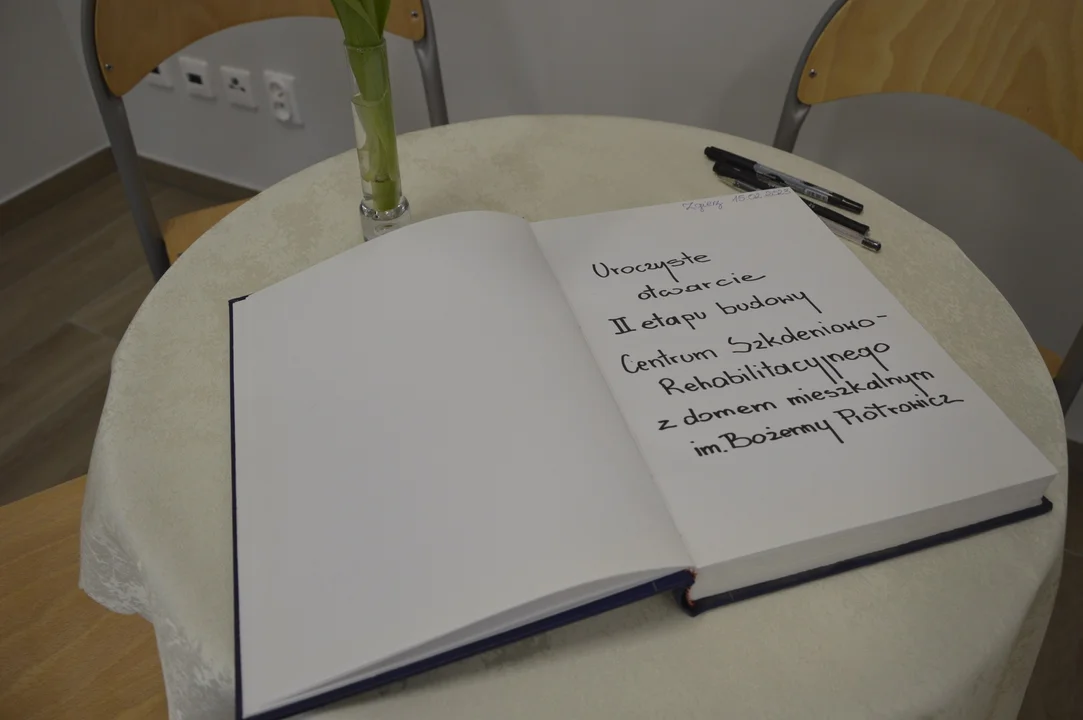 Zgierz 15.02.2023
Uroczyste
otwarcie
II etapu budowy
Centrum Szkoleniowo-
Rehabilitacyjnego
z domem mieszkalnym
im. Bożenny Piotrowicz